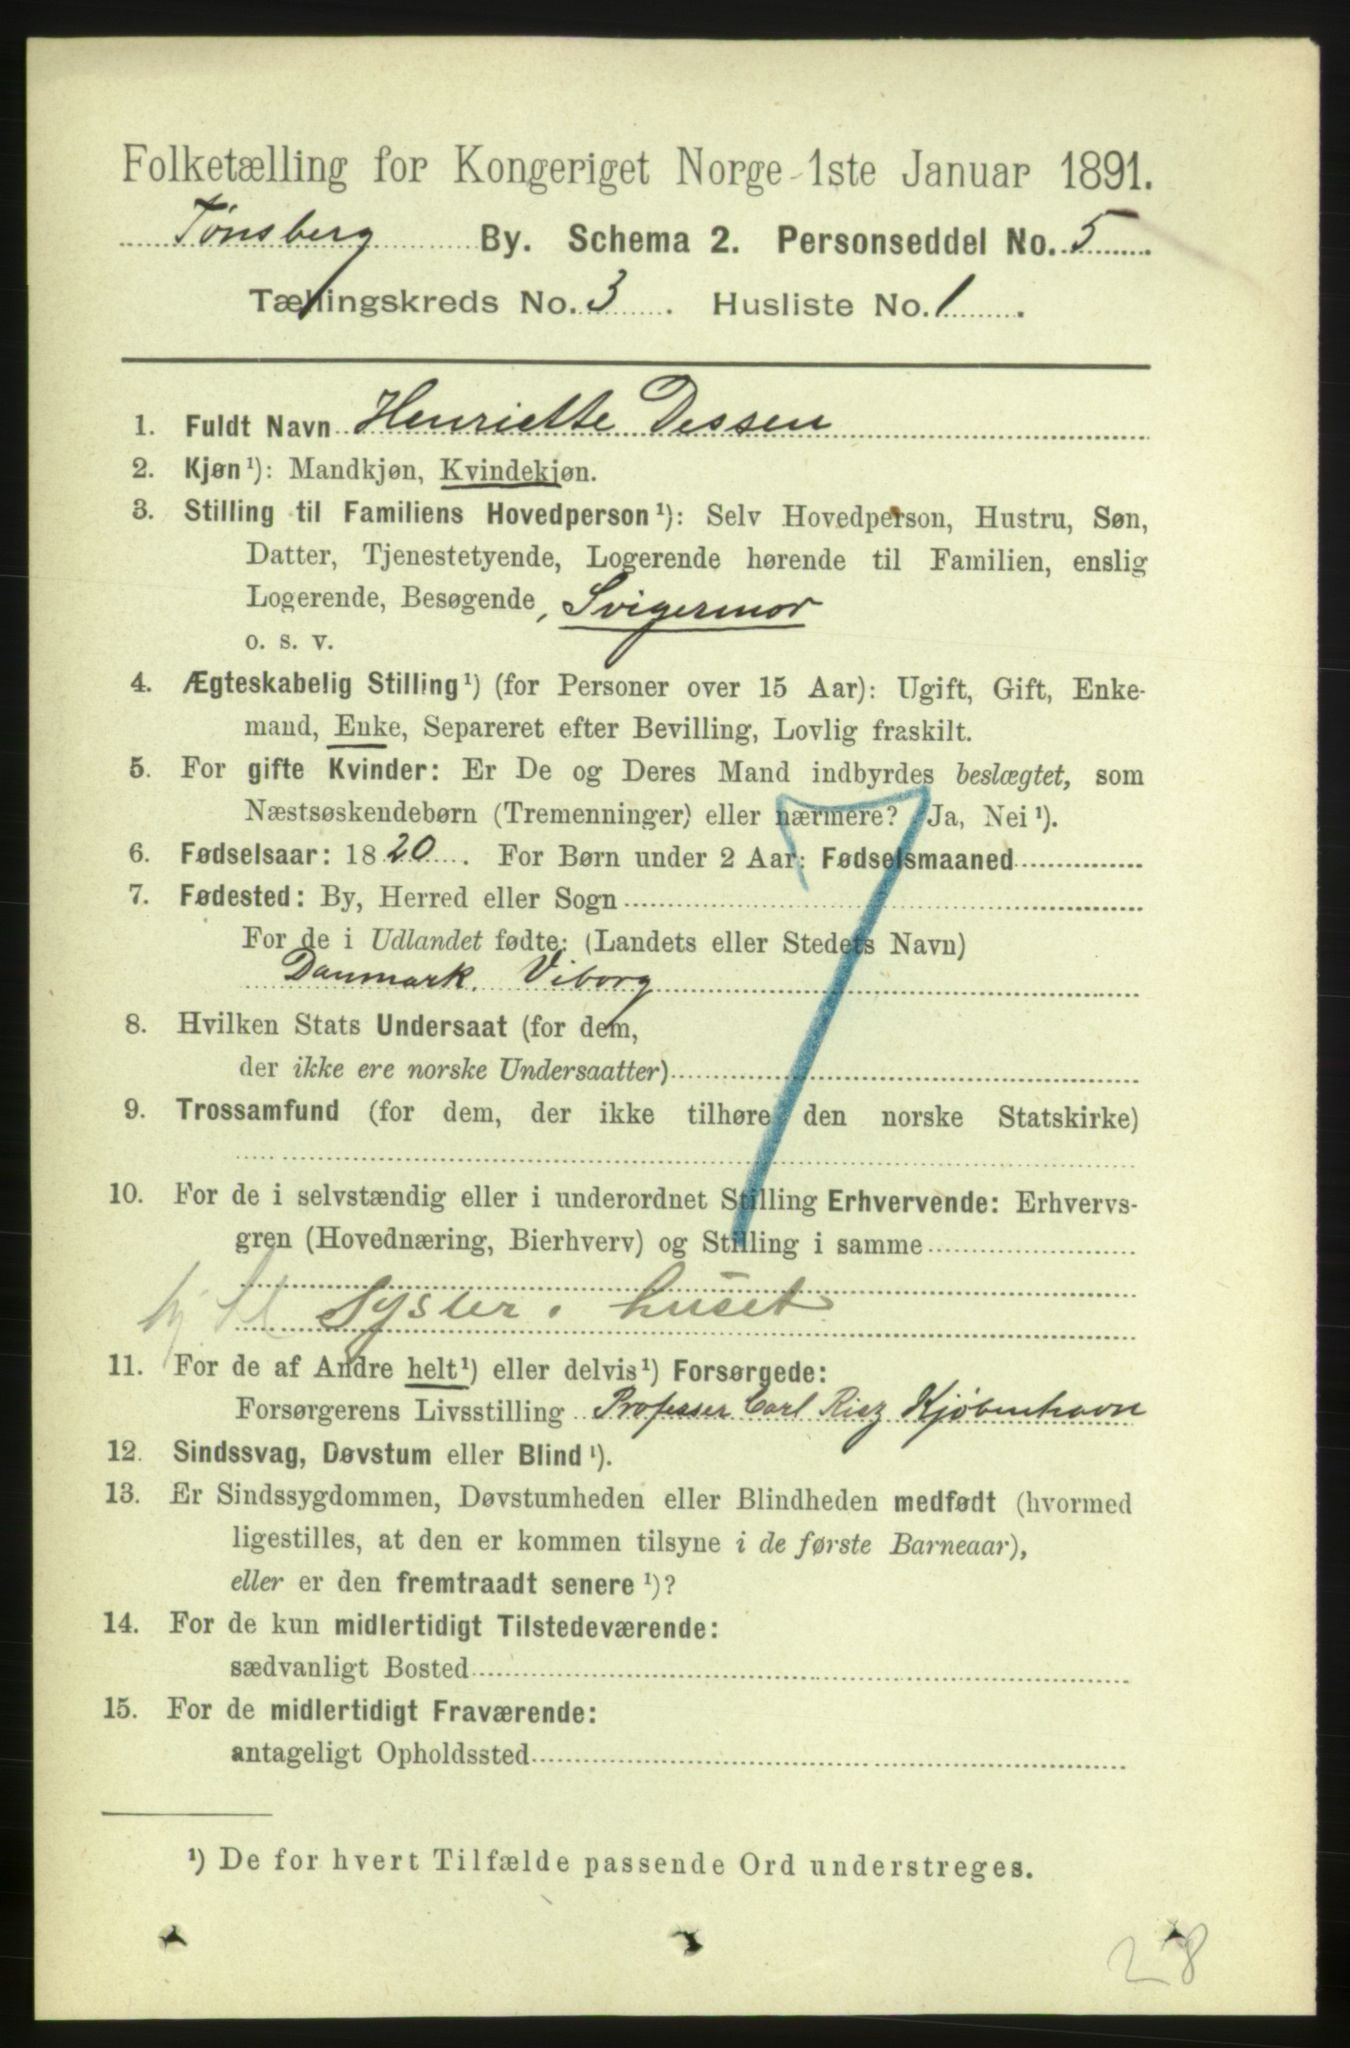 Folketælling for Kongeriget Norge 1ste Januar 1891.
Tønsberg By. Schema 2. Personseddel No. 5
Tællingskreds No. 3. Husliste No. 1.
1. Fuldt Navn Henriette Dessen
2. Kjøn¹): Mandkjøn, Kvindekjøn.
3. Stilling til Familiens Hovedperson¹): Selv Hovedperson, Hustru, Søn,
Datter, Tjenestetyende, Logerende hørende til Familien, enslig
Logerende, Besøgende, Svigermor
o. s. v.
4. Ægteskabelig Stilling¹) (for Personer over 15 Aar): Ugift, Gift, Enke-
mand, Enke, Separeret efter Bevilling, Lovlig fraskilt.
5. For gifte Kvinder: Er De og Deres Mand indbyrdes beslægtet, som
Næstsøskendebørn (Tremenninger) eller nærmere? Ja, Nei¹).
6. Fødselsaar: 1820. For Børn under 2 Aar: Fødselsmaaned
7. Fødested: By, Herred eller Sogn
For de i Udlandet fødte: (Landets eller Stedets Navn)
Danmark. Viborg
8. Hvilken Stats Undersaat (for dem,
der ikke ere norske Undersaatter)
9. Trossamfund (for dem, der ikke tilhøre den norske Statskirke)
10. For de i selvstændig eller i underordnet Stilling Erhvervende: Erhvervs-
gren (Hovednæring, Bierhverv) og Stilling i samme
Sysler i huset
11. For de af Andre helt¹) eller delvis¹) Forsørgede:
Forsørgerens Livsstilling Professer Carl Risz Kjøbenhavn
12. Sindssvag, Døvstum eller Blind¹).
13. Er Sindssygdommen, Døvstumheden eller Blindheden medfødt (hvormed
ligestilles, at den er kommen tilsyne i de første Barneaar),
eller er den fremtraadt senere¹)?
14. For de kun midlertidigt Tilstedeværende:
sædvanligt Bosted
15. For de midlertidigt Fraværende:
antageligt Opholdssted
¹) De for hvert Tilfælde passende Ord understreges.
28